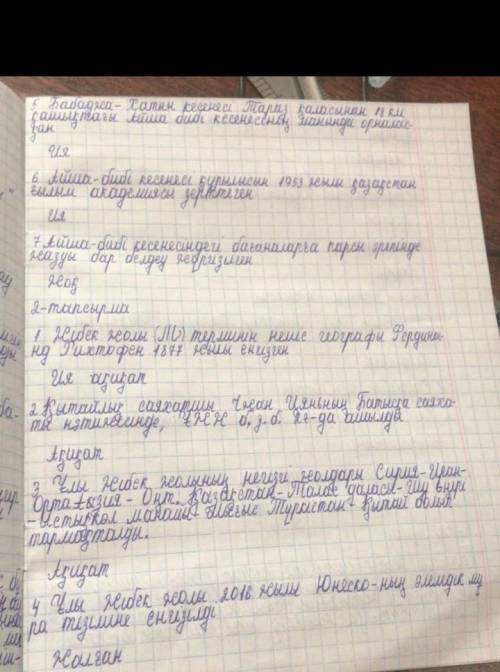 5. Бабаджа-Хатын кесенесі Тараз қаласынан 18 км
қашықтағы Айша бибі кесенесінің жанында орналас-
қан
Ия
6 Айша-бибі кесенесі құрылысын 1953 жылы қазақстан
ғылым академиясы зерттеген
Ия
7. Айша-бибі кесенесіндегі бағаналарға парсы әрпінде
жазуы бар белдеу жүргізілген
Жоқ
2-тапсырма
1. Жібек жолы терминін неміс географы Фердина-
нд Рихтофен 1877 жылы енгізген
Ия ақиқат
2. Қытайлық саяхатшы Чжан Цяньның Батысқа саяха-
ты нәтижесінде, ҰЖЖ б.з.б. да ашылды
Ақиқат
3 Ұлы Жібек жолының негізгі жолдары Сирия-Иран-
Орта Азия - Оңт. Қазақстан-Талас даласы-Шу өңірі
-Ыстықкөл маңайы-Шығыс Түркістан-Қытай болып
тармақталды.
Ақиқат
4 Ұлы Жібек жолы 2016 жылы Юнеско-ның әлемдік мұ
ра тізіміне енгізілді
Жалған